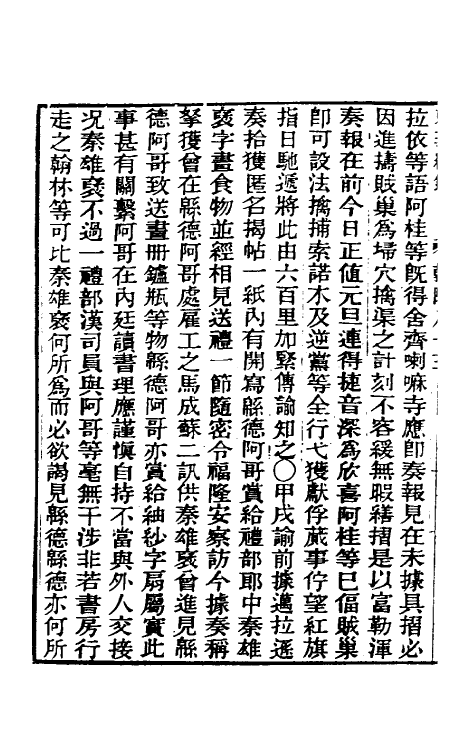 拉依等語阿桂等旣得舍齊喇嘛寺應卽奏報見在未據具摺必
因進擣賊巢爲埽穴擒渠之計刻不容緩無暇繕摺是以富勒渾
奏報在前今日正値元旦連得捷音深爲欣喜阿桂等已偪賊巢
卽可設法擒捕索諾木及逆黨等全行弋獲獻俘蕆事佇望紅旗
指日馳遞將此由六百里加緊傳諭知之〇甲戌諭前據邁拉遜
奏拾獲匿名揭帖一紙內有開寫緜德阿哥賞給禮部郎中秦雄
襃字畫食物並經相見送禮一節隨密令福隆安察訪今據奏稱
拏獲曾在緜德阿哥處雇工之馬成蘇二訊供秦雄襃曾進見緜
德阿哥致送畫册鑪瓶等物緜德阿哥亦賞給紬紗字扇屬實此
事甚有關繫阿哥在內廷讀書理應謹愼自持不當與外人交接
况秦雄襃不過一禮部漢司員與阿哥等毫無干涉非若書房行
走之翰林等可比秦雄襃何所爲而必欲謁見緜德緜德亦何所